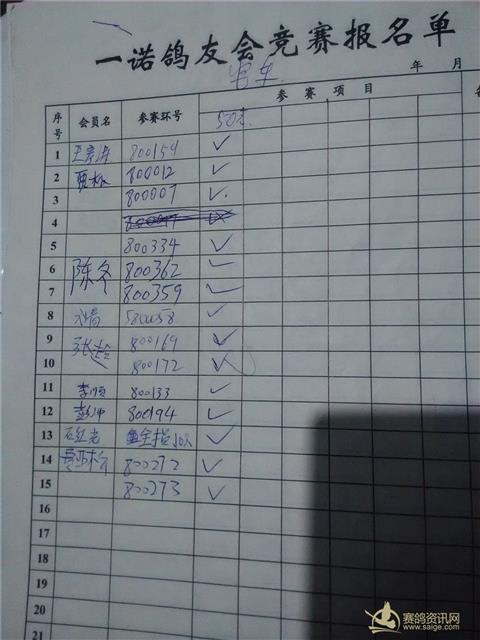 一诺鸽友会竞赛报名单
年 月
序号 会员名 参赛环号 参赛项目
50元
1 800154 ✓
2 800012 ✓
3 800007 ✓
4
5 800334 ✓
6 陈冬 800362 ✓
7 800359 ✓
8 580058 ✓
9 800169 ✓
10 800172 ✓
11 李顺 800133 ✓
12 800194 ✓
13 石红光 ✓
14 800272 ✓
15 800273 ✓
16
17
18
19
20
21
赛鸽资讯网
www.saige.com